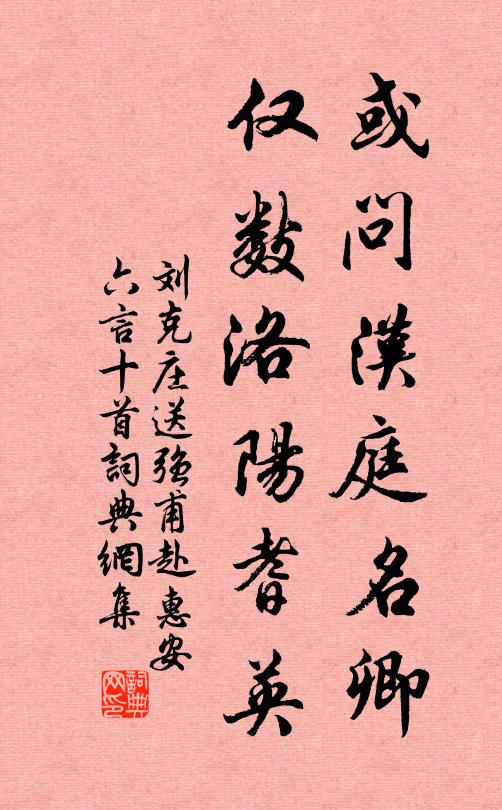 或问漢庭名卿
仅数洛陽耆英
刘克庄送强甫赴惠安
六言十首詞典網集
詞典网印